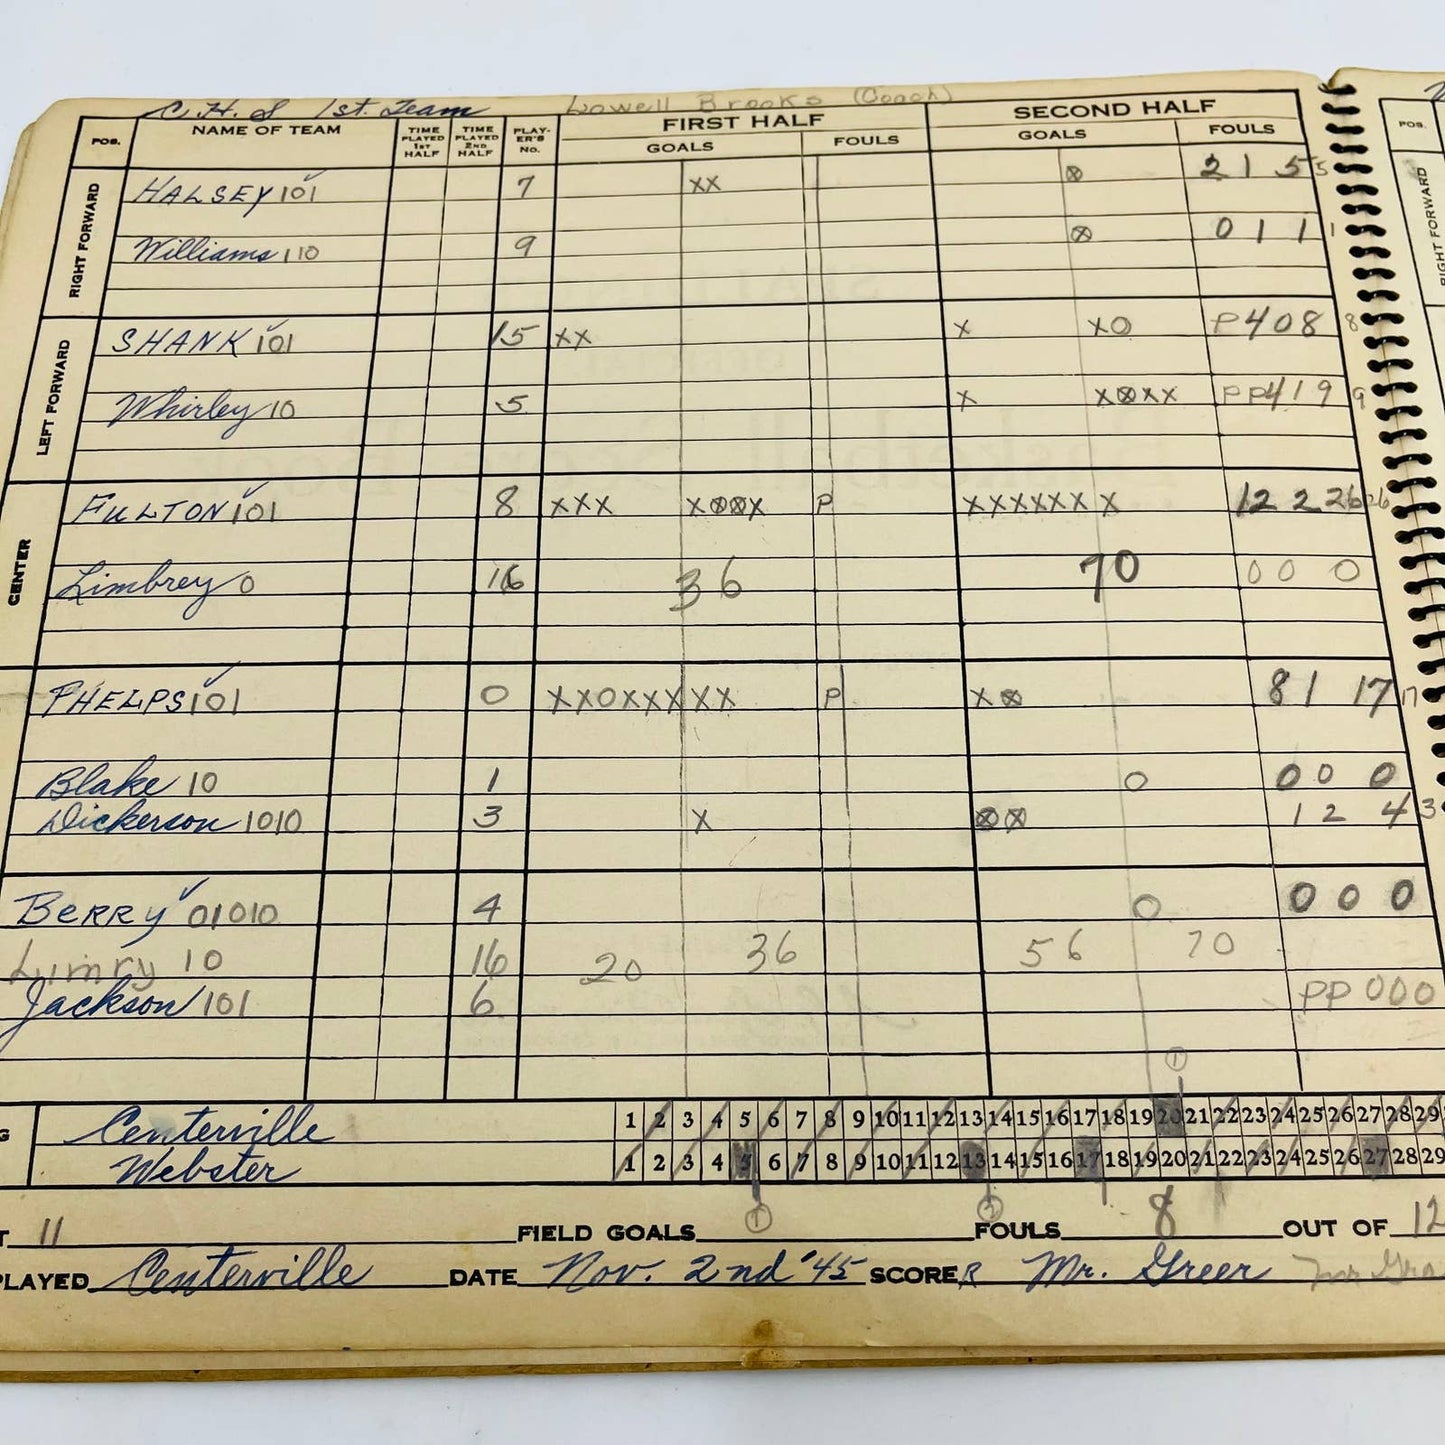 C. H. S 1st. Team Lowell Brooks (Coach)
POS. NAME OF TEAM TIME PLAYED 1ST HALF TIME PLAYED 2ND HALF PLAY-ER'S No. FIRST HALF SECOND HALF
GOALS FOULS GOALS FOULS
RIGHT FORWARD
HALSEY 101 7 XX ⊗ 2 1 5 5
Williams 110 9 ⊗ 0 1 1 1
LEFT FORWARD
SHANK 101 15 XX X XO P 4 0 8 8
Whirley 10 5 X X⊗XX PP 4 1 9 9
CENTER
FULTON 101 8 XXX X⊗⊗X P XXXXXX X 12 2 26 26
Limbrey 0 16 36 70 0 0 0
PHELPS 101 0 XXOXXXXX P X⊗ 8 1 17 17
Blake 10 1 O 0 0 0
Dickerson 1010 3 X ⊗⊗ 1 2 4 3
BERRY 01010 4 O 0 0 0
Limry 10 16 20 36 56 70
Jackson 101 6 PP 000
1
Centerville 1 2 3 4 5 6 7 8 9 10 11 12 13 14 15 16 17 18 19 20 21 22 23 24 25 26 27 28 29
Webster 1 2 3 4 5 6 7 8 9 10 11 12 13 14 15 16 17 18 19 20 21 22 23 24 25 26 27 28 29
1 2
11 FIELD GOALS FOULS 8 OUT OF 12
PLAYED Centerville DATE Nov. 2nd '45 SCORER Mr. Greer
POS.
RIGHT FORWARD